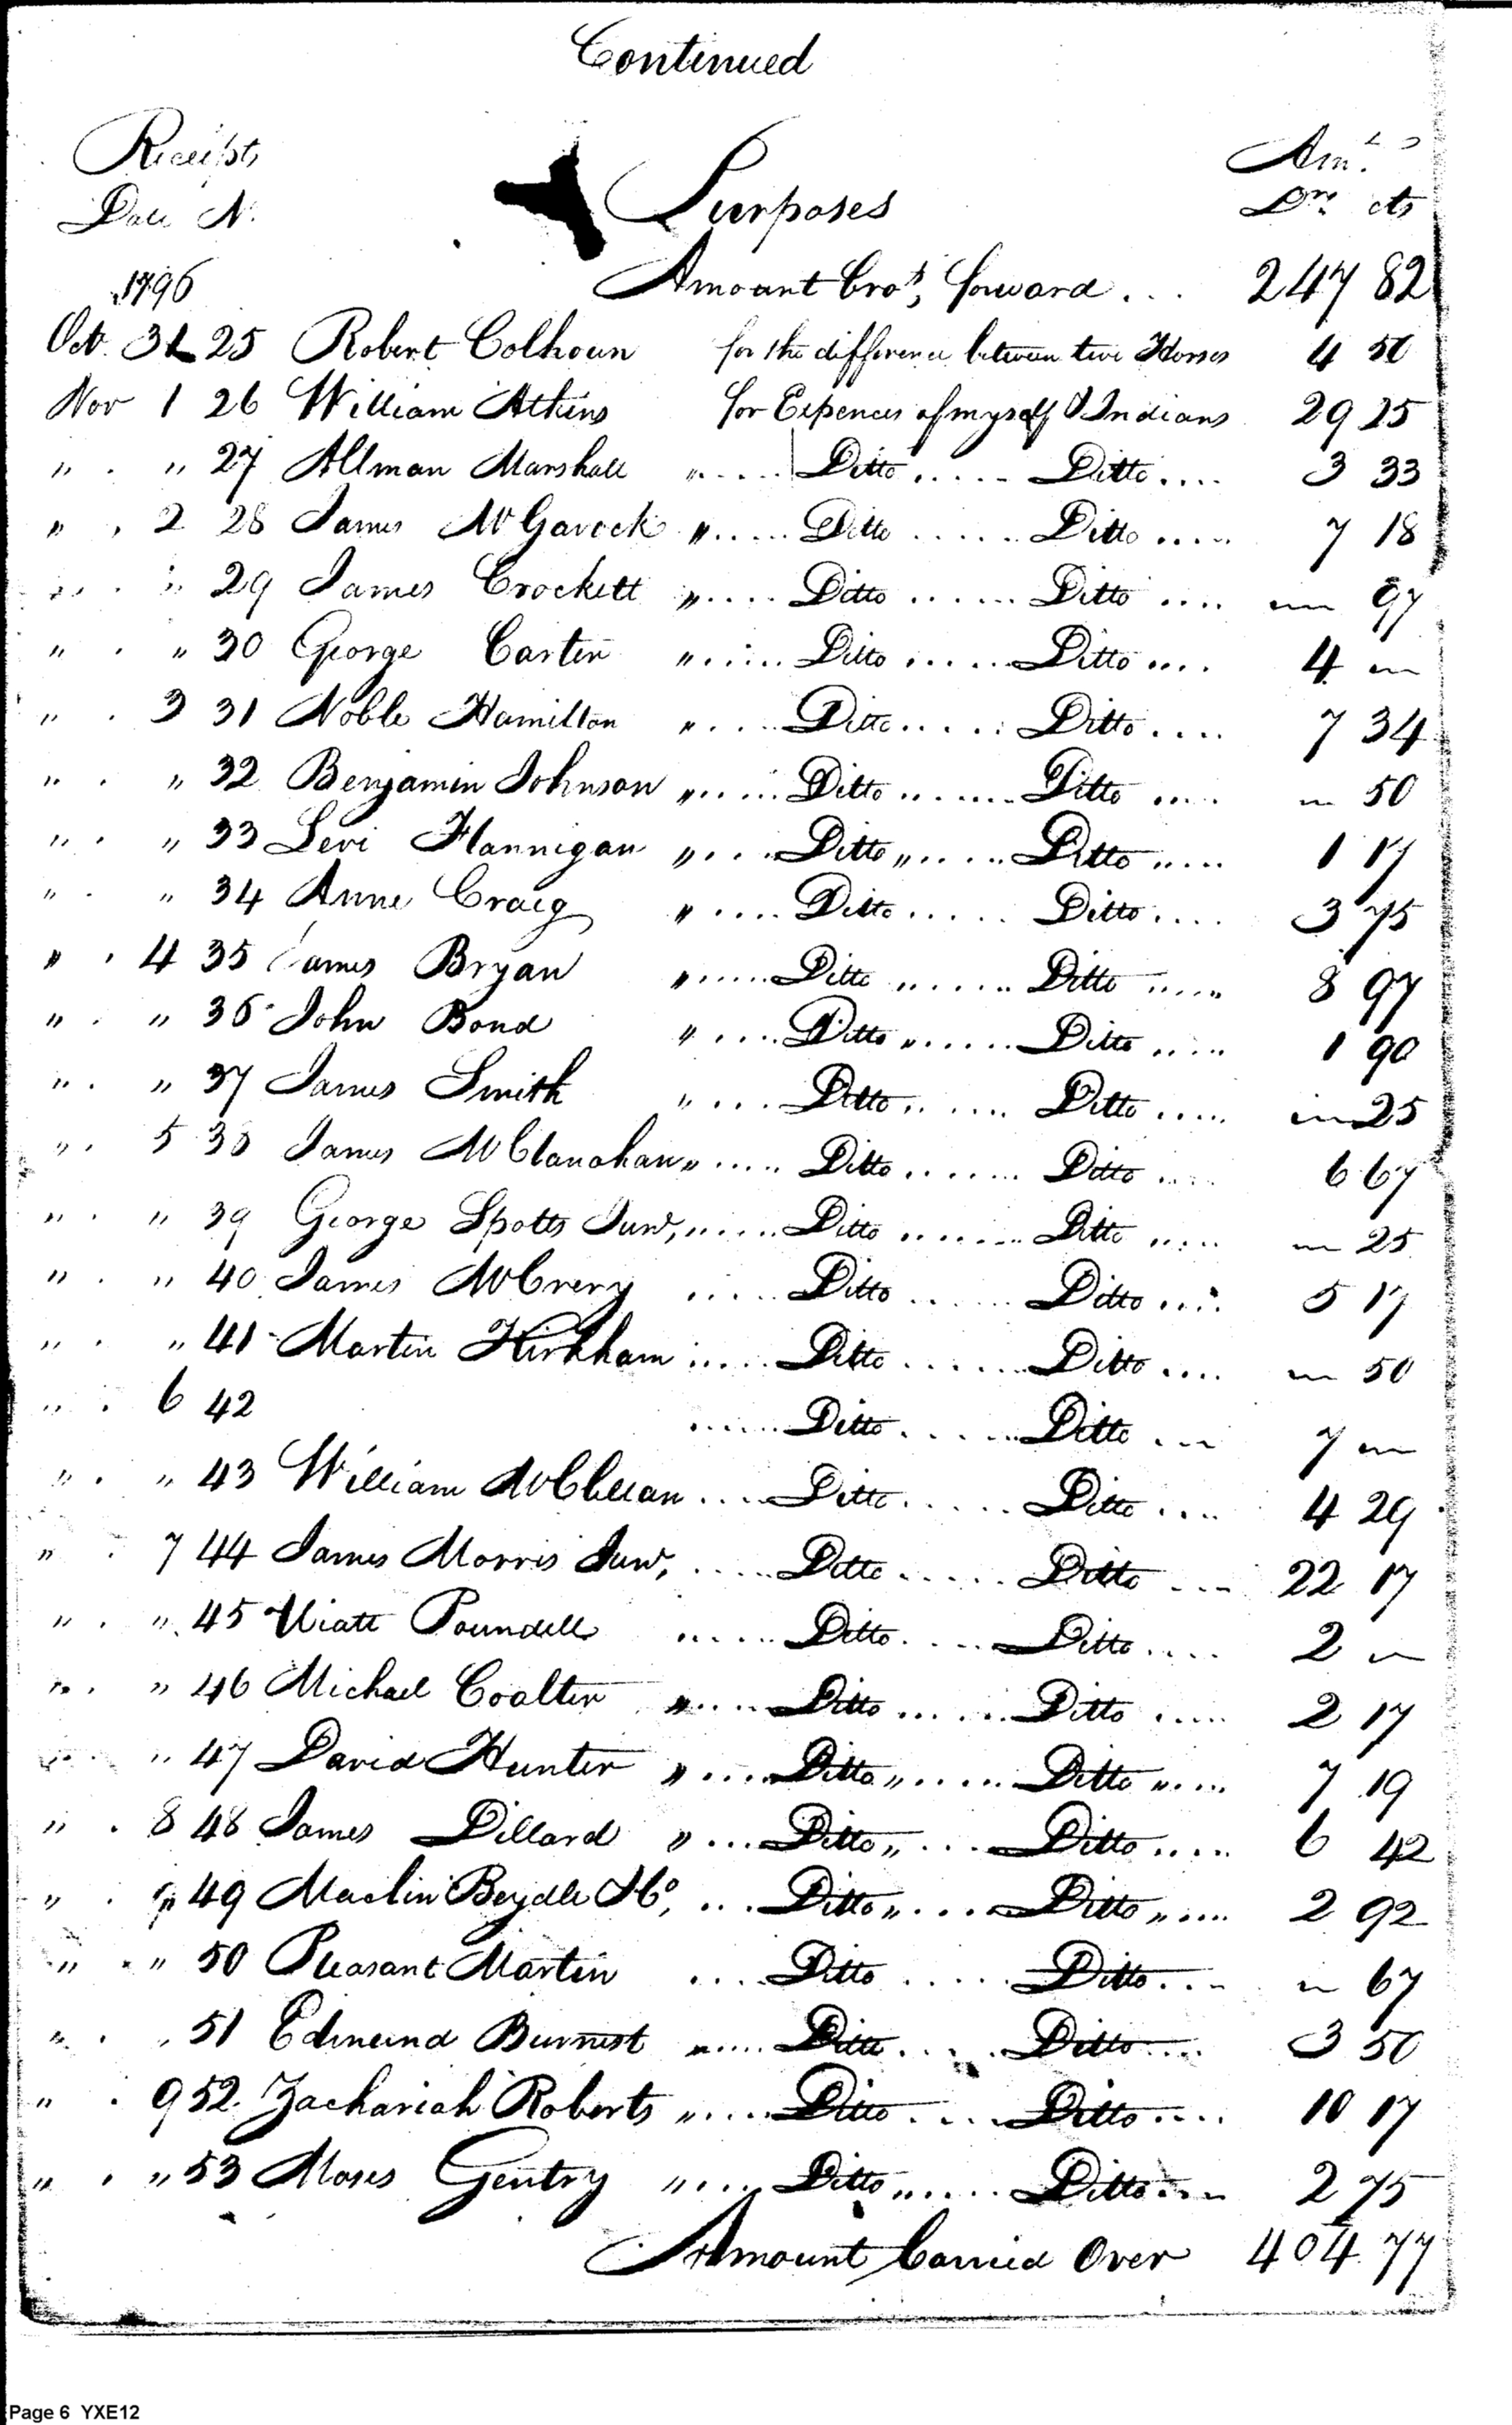 Continued
Receipts
Date N.
Purposes
Am.ts
Drs cts
1796
Amount Brot, forward ... 247 82
Oct. 31 25 Robert Colhoun for the difference between two Horses 4 50
Nov 1 26 William Atkins for Expences of myself & Indians 29 25
" . " 27 Allman Marshall " .... Ditto ..... Ditto .... 3 33
" . 2 28 James McGavock " ..... Ditto ...... Ditto ..... 7 18
" . " 29 James Crockett " .... Ditto ...... Ditto .... " 97
" . " 30 George Carter " ..... Ditto ..... Ditto .... 4 "
" . 3 31 Noble Hamilton " .... Ditto ..... Ditto .... 7 34
" . " 32 Benjamin Johnson " ..... Ditto ...... Ditto .... " 50
" . " 33 Levi Flannigan " .... Ditto " ..... Ditto .... 1 17
" . " 34 Anne Craig " .... Ditto ..... Ditto .... 3 75
" . 4 35 James Bryan " ..... Ditto ...... Ditto ..... 8 97
" . " 36 John Bond " .... Ditto " ..... Ditto ..... 1 90
" . " 37 James Smith " .... Ditto ...... Ditto ..... " 25
" . 5 38 James McClanahan " ..... Ditto ...... Ditto .... 6 67
" . " 39 George Spotts Junr, " .... Ditto ...... Ditto .... " 25
" . " 40 James McCrery ..... Ditto ..... Ditto .... 5 17
" . " 41 Martin Kirkham ..... Ditto ...... Ditto .... " 50
" . 6 42 ..... Ditto ..... Ditto ... 7 "
" . " 43 William McClellan .... Ditto ..... Ditto .... 4 29
" . 7 44 James Morris Junr, ..... Ditto ..... Ditto .... 22 17
" . " 45 Poundell ..... Ditto ..... Ditto .... 2 "
" . " 46 Michael Coalter " .... Ditto ..... Ditto .... 2 17
" . " 47 David Hunter " .... Ditto " ..... Ditto " .... 7 19
" . 8 48 James Dillard " ... Ditto " .... Ditto .... 6 42
" . " 49 & Co, ... Ditto " .... Ditto " .... 2 92
" . " 50 Pleasant Martin .... Ditto ..... Ditto .... " 67
" . " 51 Edmund " .... Ditto .... Ditto .... 3 50
" . 9 52. Zachariah Roberts " .... Ditto .... Ditto .... 10 17
" . " 53 Moses Gentry " .... Ditto " ..... Ditto .... 2 75
Amount Carried Over 404 77
Page 6 YXE12